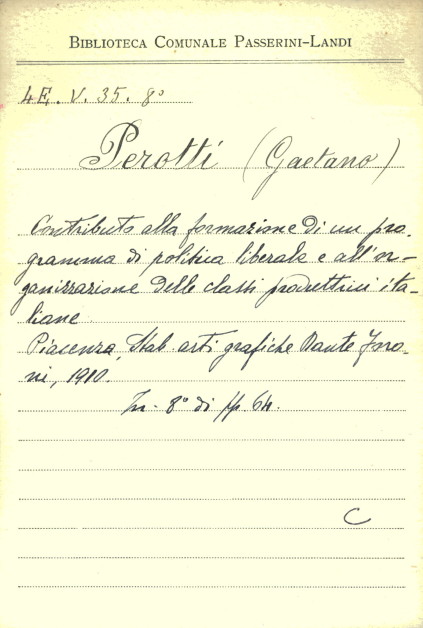 BIBLIOTECA COMUNALE PASSERINI-LANDI
4E. V. 35. 8°
Perotti (Gaetano)
Contributo alla formazione di un pro-
gramma di politica liberale e all'or-
ganizzazione delle classi produttrici ita-
liane
Piacenza, Stab. arti grafiche Dante Foro-
ni, 1910.
In-8° di pp. 64.
C